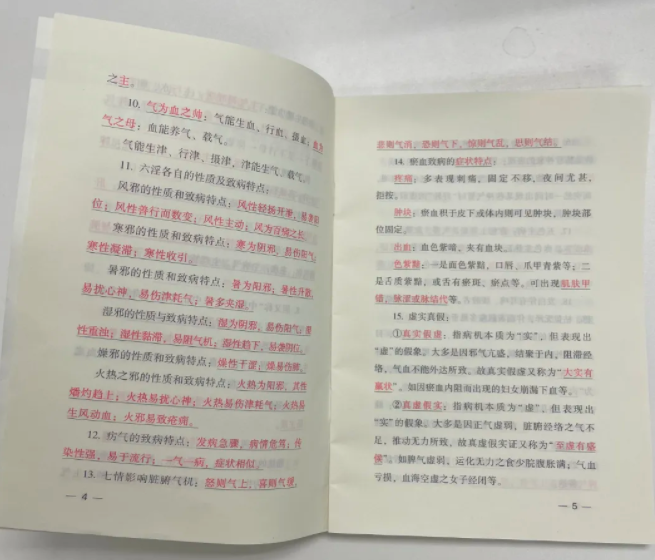 之主。
10. 气为血之帅：气能生血、行血、摄血，血为
气之母：血能养气、载气。
气能生津、行津、摄津，津能生气、载气。
11. 六淫各自的性质及致病特点：
风邪的性质和致病特点：风性轻扬开泄，易袭阳
位；风性善行而数变；风性主动；风为百病之长。
寒邪的性质和致病特点：寒为阴邪，易伤阳气；
寒性凝滞；寒性收引。
暑邪的性质和致病特点：暑为阳邪，暑性升散，
易扰心神，易伤津耗气；暑多夹湿。
湿邪的性质与致病特点：湿为阴邪，易伤阳气；湿
性重浊；湿性黏滞，易阻气机；湿性趋下，易袭阴位。
燥邪的性质和致病特点：燥性干涩；燥易伤肺。
火热之邪的性质和致病特点：火热为阳邪，其性
燔灼趋上；火热易扰心神；火热易伤津耗气；火热易
生风动血；火邪易致疮疡。
12. 疠气的致病特点：发病急骤，病情危笃；传
染性强，易于流行；一气一病，症状相似。
13. 七情影响脏腑气机：怒则气上，喜则气缓，
— 4 —
悲则气消，恐则气下，惊则气乱，思则气结。
14. 瘀血致病的症状特点：
疼痛：多表现刺痛，固定不移，夜间尤甚，
拒按。
肿块：瘀血积于皮下或体内则可见肿块，肿块部
位固定。
出血：血色紫暗，夹有血块。
色紫黯：一是面色紫黯，口唇、爪甲青紫等；二
是舌质紫黯，或舌有瘀斑、瘀点等。可出现肌肤甲
错，脉涩或脉结代等。
15. 虚实真假：
①真实假虚：指病机本质为“实”，但表现出
“虚”的假象。大多是因邪气亢盛，结聚于内，阻滞经
络，气血不能外达所致。故真实假虚又称为“大实有
羸状”。如因瘀血内阻而出现的妇女崩漏下血等。
②真虚假实：指病机本质为“虚”，但表现出
“实”的假象。大多是因正气虚弱，脏腑经络之气不
足，推动无力所致。故真虚假实证又称为“至虚有盛
候”。如脾气虚弱，运化无力之食少脘腹胀满；气血
亏损，血海空虚之女子经闭等。
— 5 —